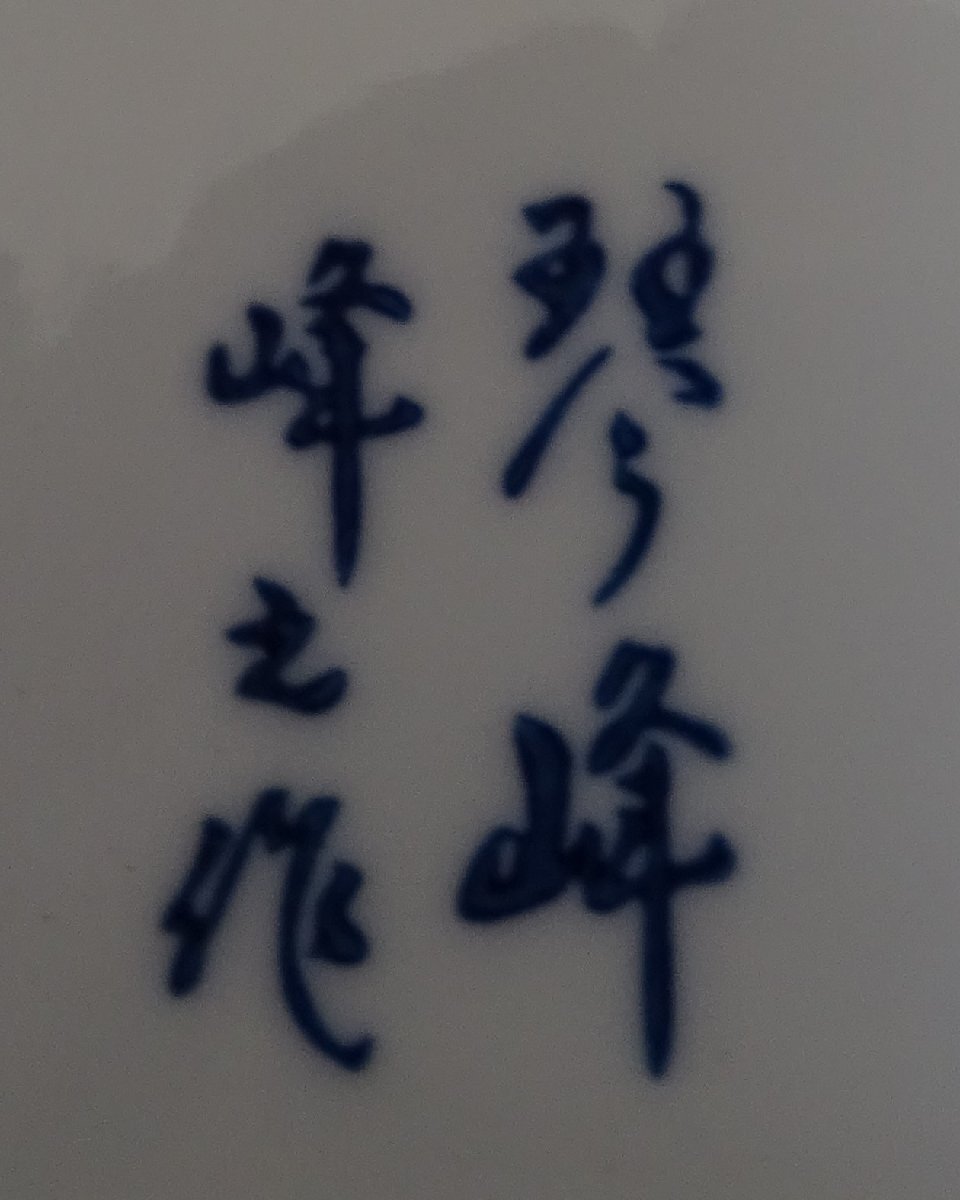 琴峰
峰之作